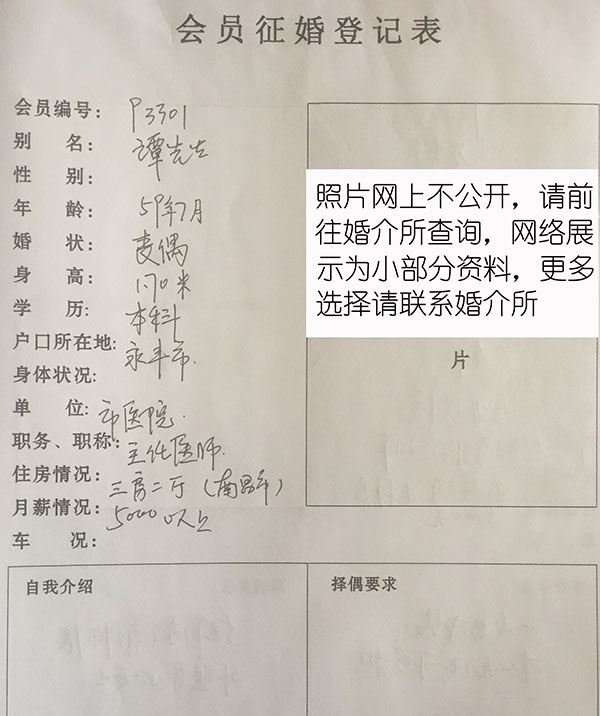 会员征婚登记表
会员编号: P3301
别 名: 谭先生
性 别:
年 龄: 59年7月
婚 状: 丧偶
身 高: 1.70米
学 历: 本科
户口所在地: 永丰市.
身体状况:
单 位: 市医院.
职务、职称: 主任医师.
住房情况: 三房二厅(南昌市)
月薪情况: 5000以上
车 况:
照片网上不公开，请前
往婚介所查询，网络展
示为小部分资料，更多
选择请联系婚介所
片
自我介绍
择偶要求